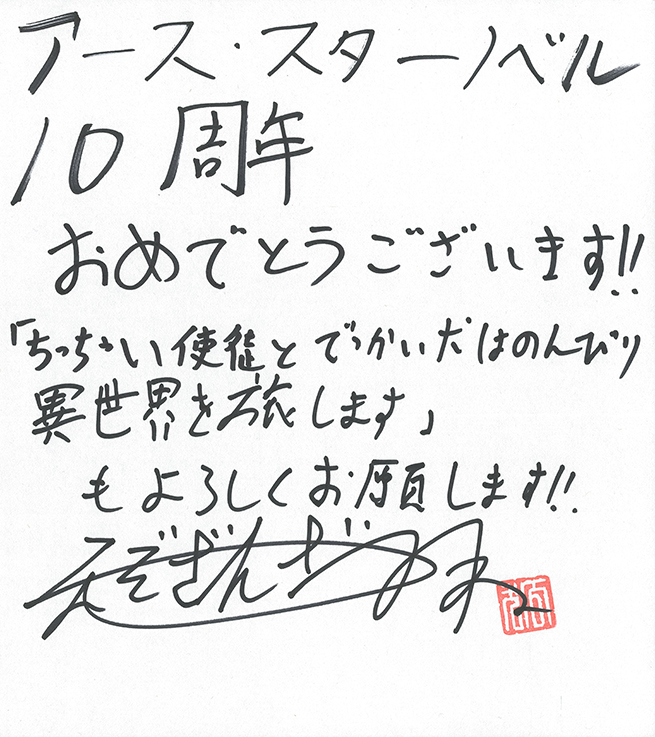 アース・スターノベル
10周年
おめでとうございます!!
「ちっちゃい使徒とでっかい犬はのんびり
異世界を旅します」
もよろしくお願します!!
えぞぎんぎつね